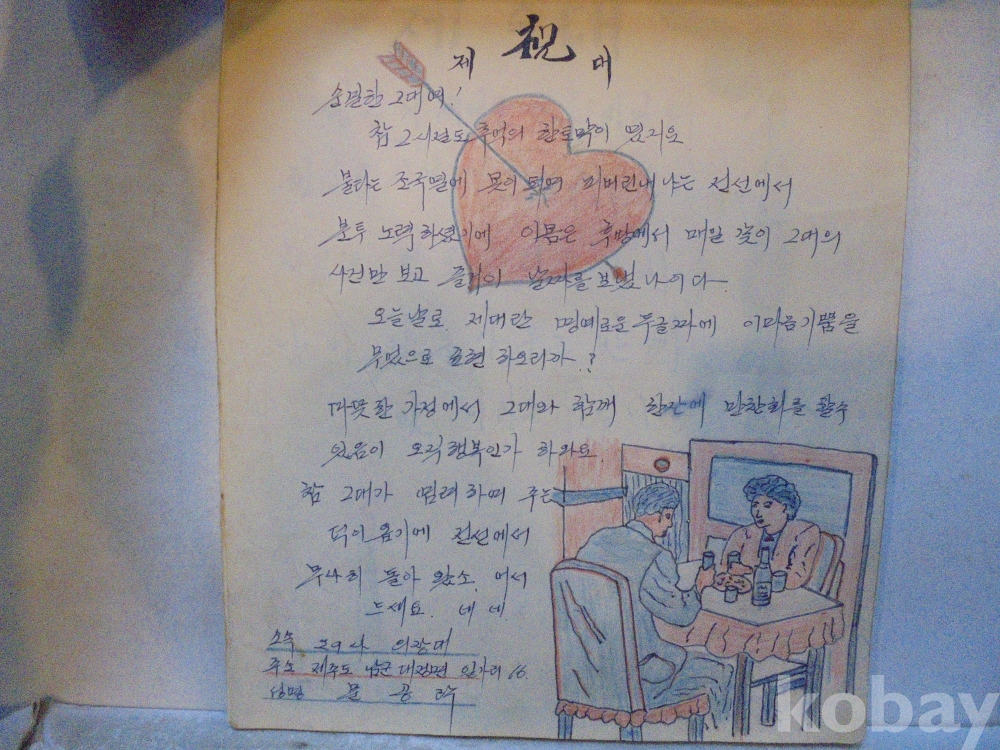 제 祝 대
순결한 그대여!
참 그시절도 추억의 한토막이 되지요
불타는 조국땅에 몸이 되여 피비린내 나는 전선에서
분투 노력하였기에 이몸은 후방에서 매일 같이 그대의
사진만 보고 즐거이 날짜를 보냈나이다
오늘날로 제대란 명예로운 두글짜에 이마음 기쁨을
무엇으로 표현 하오리까?
따뜻한 가정에서 그대와 함께 한잔에 만찬회를 할수
있음이 오직 행복인가 하와요
참 그대가 염려하여 주는
덕이옵기에 전선에서
무사히 돌아 왔소. 어서
드세요. 네 네
소속 29사 의장대
주소 제주도 남군 대정면 일과리 16.
성명 문
kobay